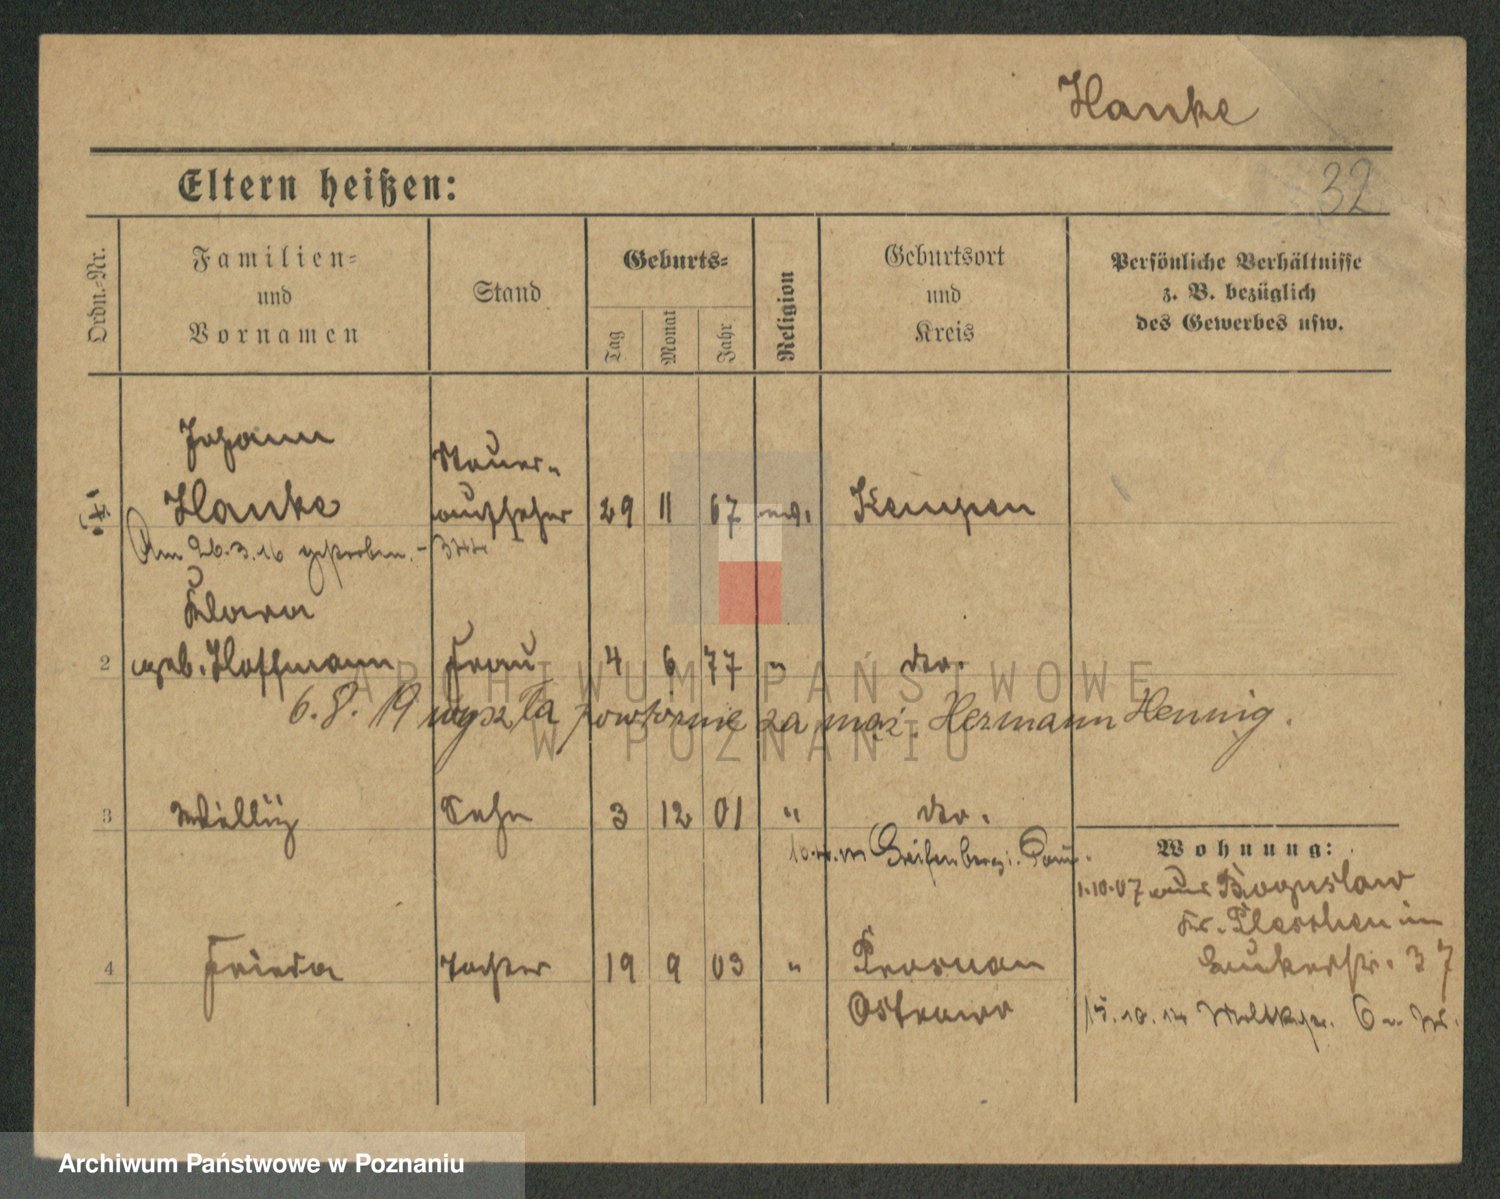 Hanke
Eltern heißen:
32
Ordn.-Nr.
Familien-
und
Vornamen
Stand
Geburts-
Tag
Monat
Jahr
Religion
Geburtsort
und
Kreis
Persönliche Verhältnisse
z. B. bezüglich
des Gewerbes usw.
Johann
Hanke
Steuer-
aufseher
29 11 67
Kempen
Am 26.3.16 gestorben. -
Klara
2 geb. Hoffmann Frau 4 6 77 " do.
6.8.19 wyszła powtórnie za mąż. Hermann Hennig.
3 Willy Sohn 3 12 01 " do.
Greifenberg i. Pom.
Wohnung:
1.10.07 aus Boguslaw
Kr. Pleschen in
37
4 Frieda Tochter 19 9 03 "
Ostrowo
15.10.
ARCHIWUM PAŃSTWOWE
W POZNANIU
Archiwum Państwowe w Poznaniu